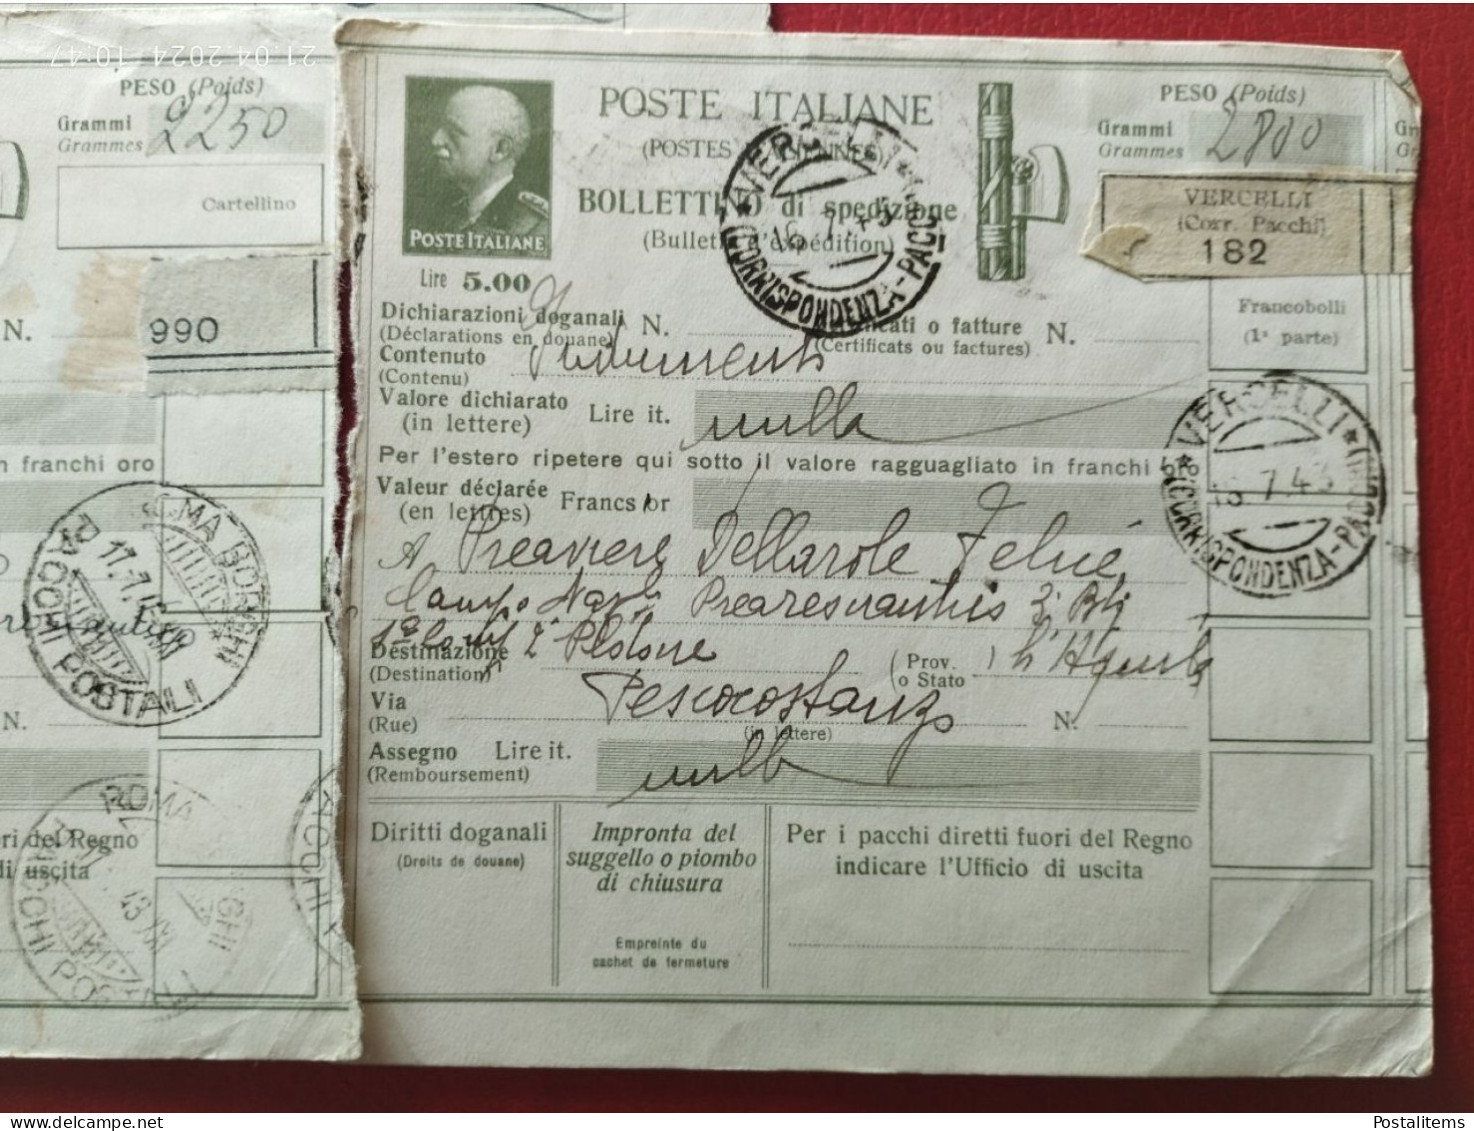 21.04.2024 10:47
PESO (Poids)
Grammi
Grammes
2250
Cartellino
N.
990
franchi oro
ROMA BORGHI
PACCHI POSTALI
17.7.
N.
ROMA
PACCHI POSTALI
ri del Regno
di uscita
POSTE ITALIANE
Lire 5.00
POSTE ITALIANE
(POSTES
BOLLETTINO di spedizione
(Bulletin d'expédition)
VERCELLI
(CORRISPONDENZA-PACCHI)
PESO (Poids)
Grammi
Grammes
2800
VERCELLI
(Corr. Pacchi)
182
Francobolli
(1ª parte)
Dichiarazioni doganali N.
(Déclarations en douane)
o fatture N.
(Certificats ou factures)
Contenuto Indumenti
(Contenu)
Valore dichiarato Lire it. nulla
(in lettere)
Per l'estero ripetere qui sotto il valore ragguagliato in franchi oro
Valeur déclarée Francs or
(en lettres)
VERCELLI
(CORRISPONDENZA-PACCHI)
7.43
A Preaviere Dellarole Felice
Campo
1ª 2º Plotone
Destinazione
(Destination)
(Prov. o Stato) L'Aquila
Via Pescocostanzo N.
(Rue)
(in lettere)
Assegno Lire it. nulla
(Remboursement)
Diritti doganali
(Droits de douane)
Impronta del
suggello o piombo
di chiusura
Empreinte du
cachet de fermeture
Per i pacchi diretti fuori del Regno
indicare l'Ufficio di uscita
Postalitems